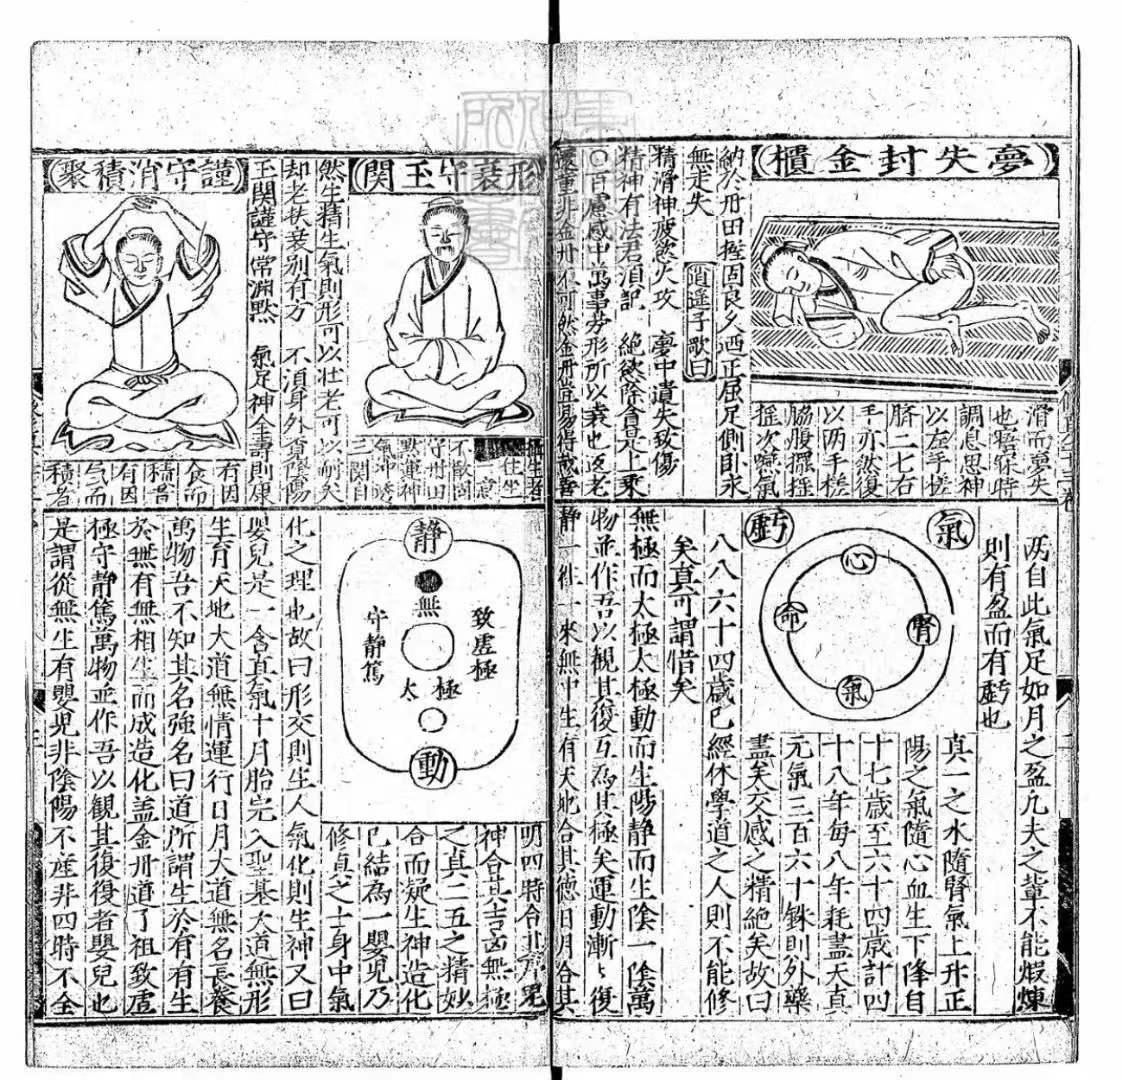 夢失封金櫃
滑而夢失
也寤寐時
調息思神
以左手搓
臍二七右
手亦然復
以兩手搓
脇腹擺揺
揺次嚥氣
納於丹田握固良久迺正屈足側卧永
無走失
逍遥子歌曰
精滑神疲慾火攻　夢中遺失致傷
精神有法君須記　絶慾除貪是上乗
○百慮感中萬事勞形所以衰也返老
還童非金丹不可然金丹豈易得哉善
形衰守玉關
攝生者
行住坐
一意
不散固
守丹田
黙運神
氣沖透
三関自
然生精生氣則形可以壮老可以耐矣
却老扶衰别有方　不須身外覓陰陽
玉関謹守常淵黙　氣足神全壽則康
謹守消積聚
有因
食而
積者
有因
气而
積者
丙自此氣足如月之盈凡夫之輩不能煆煉
則有盈而有虧也
氣
虧
心
命
腎
氣
真一之水隨腎氣上升正
陽之氣隨心血生下降自
十七歳至六十四歳計四
十八年每八年耗盡天真
元氣三百六十銖則外藥
盡矣交感之精絶矣故曰
八八六十四歳已經休學道之人則不能修
矣真可謂惜矣
無極而太極太極動而生陽静而生陰一陰萬
物並作吾以観其復互為其極矣運動漸〻復
静一往一來無中生有天地合其徳日月合其
明四時合其序鬼
神合其吉凶無極
之真二五之精妙
合而凝生神造化
已結為一嬰児乃
修真之士身中氣
静
無
致虚極
守静篤
太極
動
化之理也故曰形交則生人氣化則生神又曰
嬰兒是一含真氣十月胎完入聖基大道無形
生育天地大道無情運行日月大道無名長養
萬物吾不知其名強名曰道所謂生於有有生
於無有無相生而成造化盖金丹道了祖致虚
極守静篤萬物並作吾以観其復復者嬰兒也
是謂從無生有嬰児非陰陽不産非四時不全